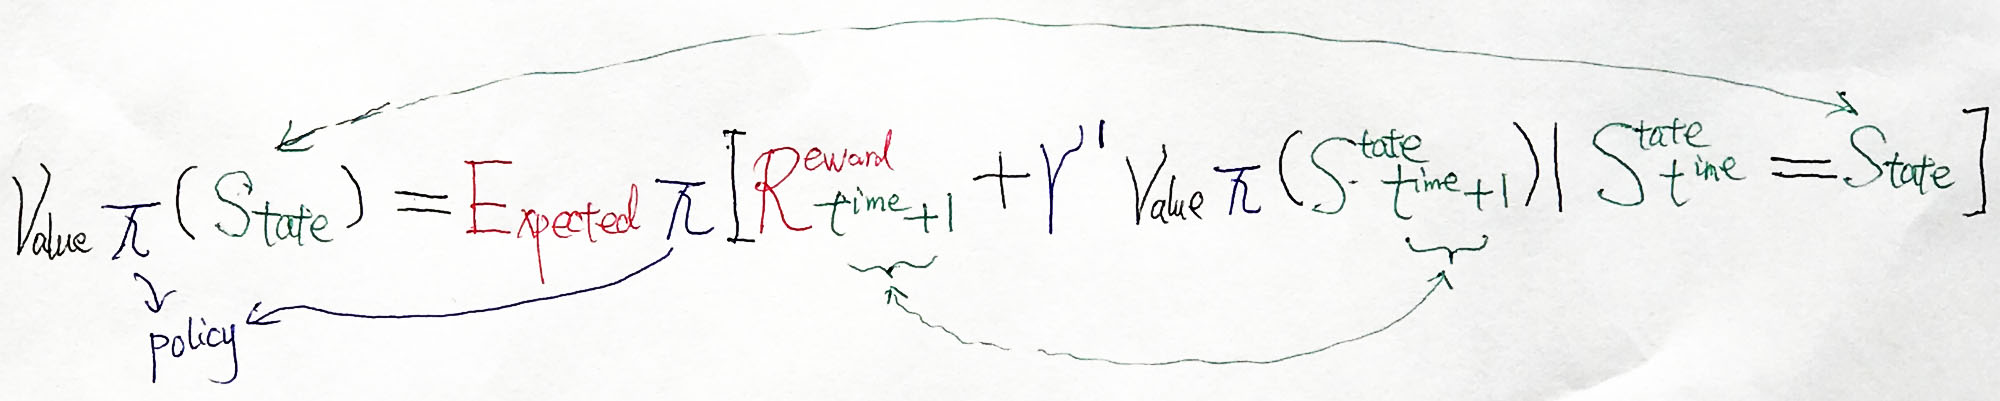 Value π (State) = Expected π [Reward time+1 + γ' Value π (State time+1) | State time = State]
policy